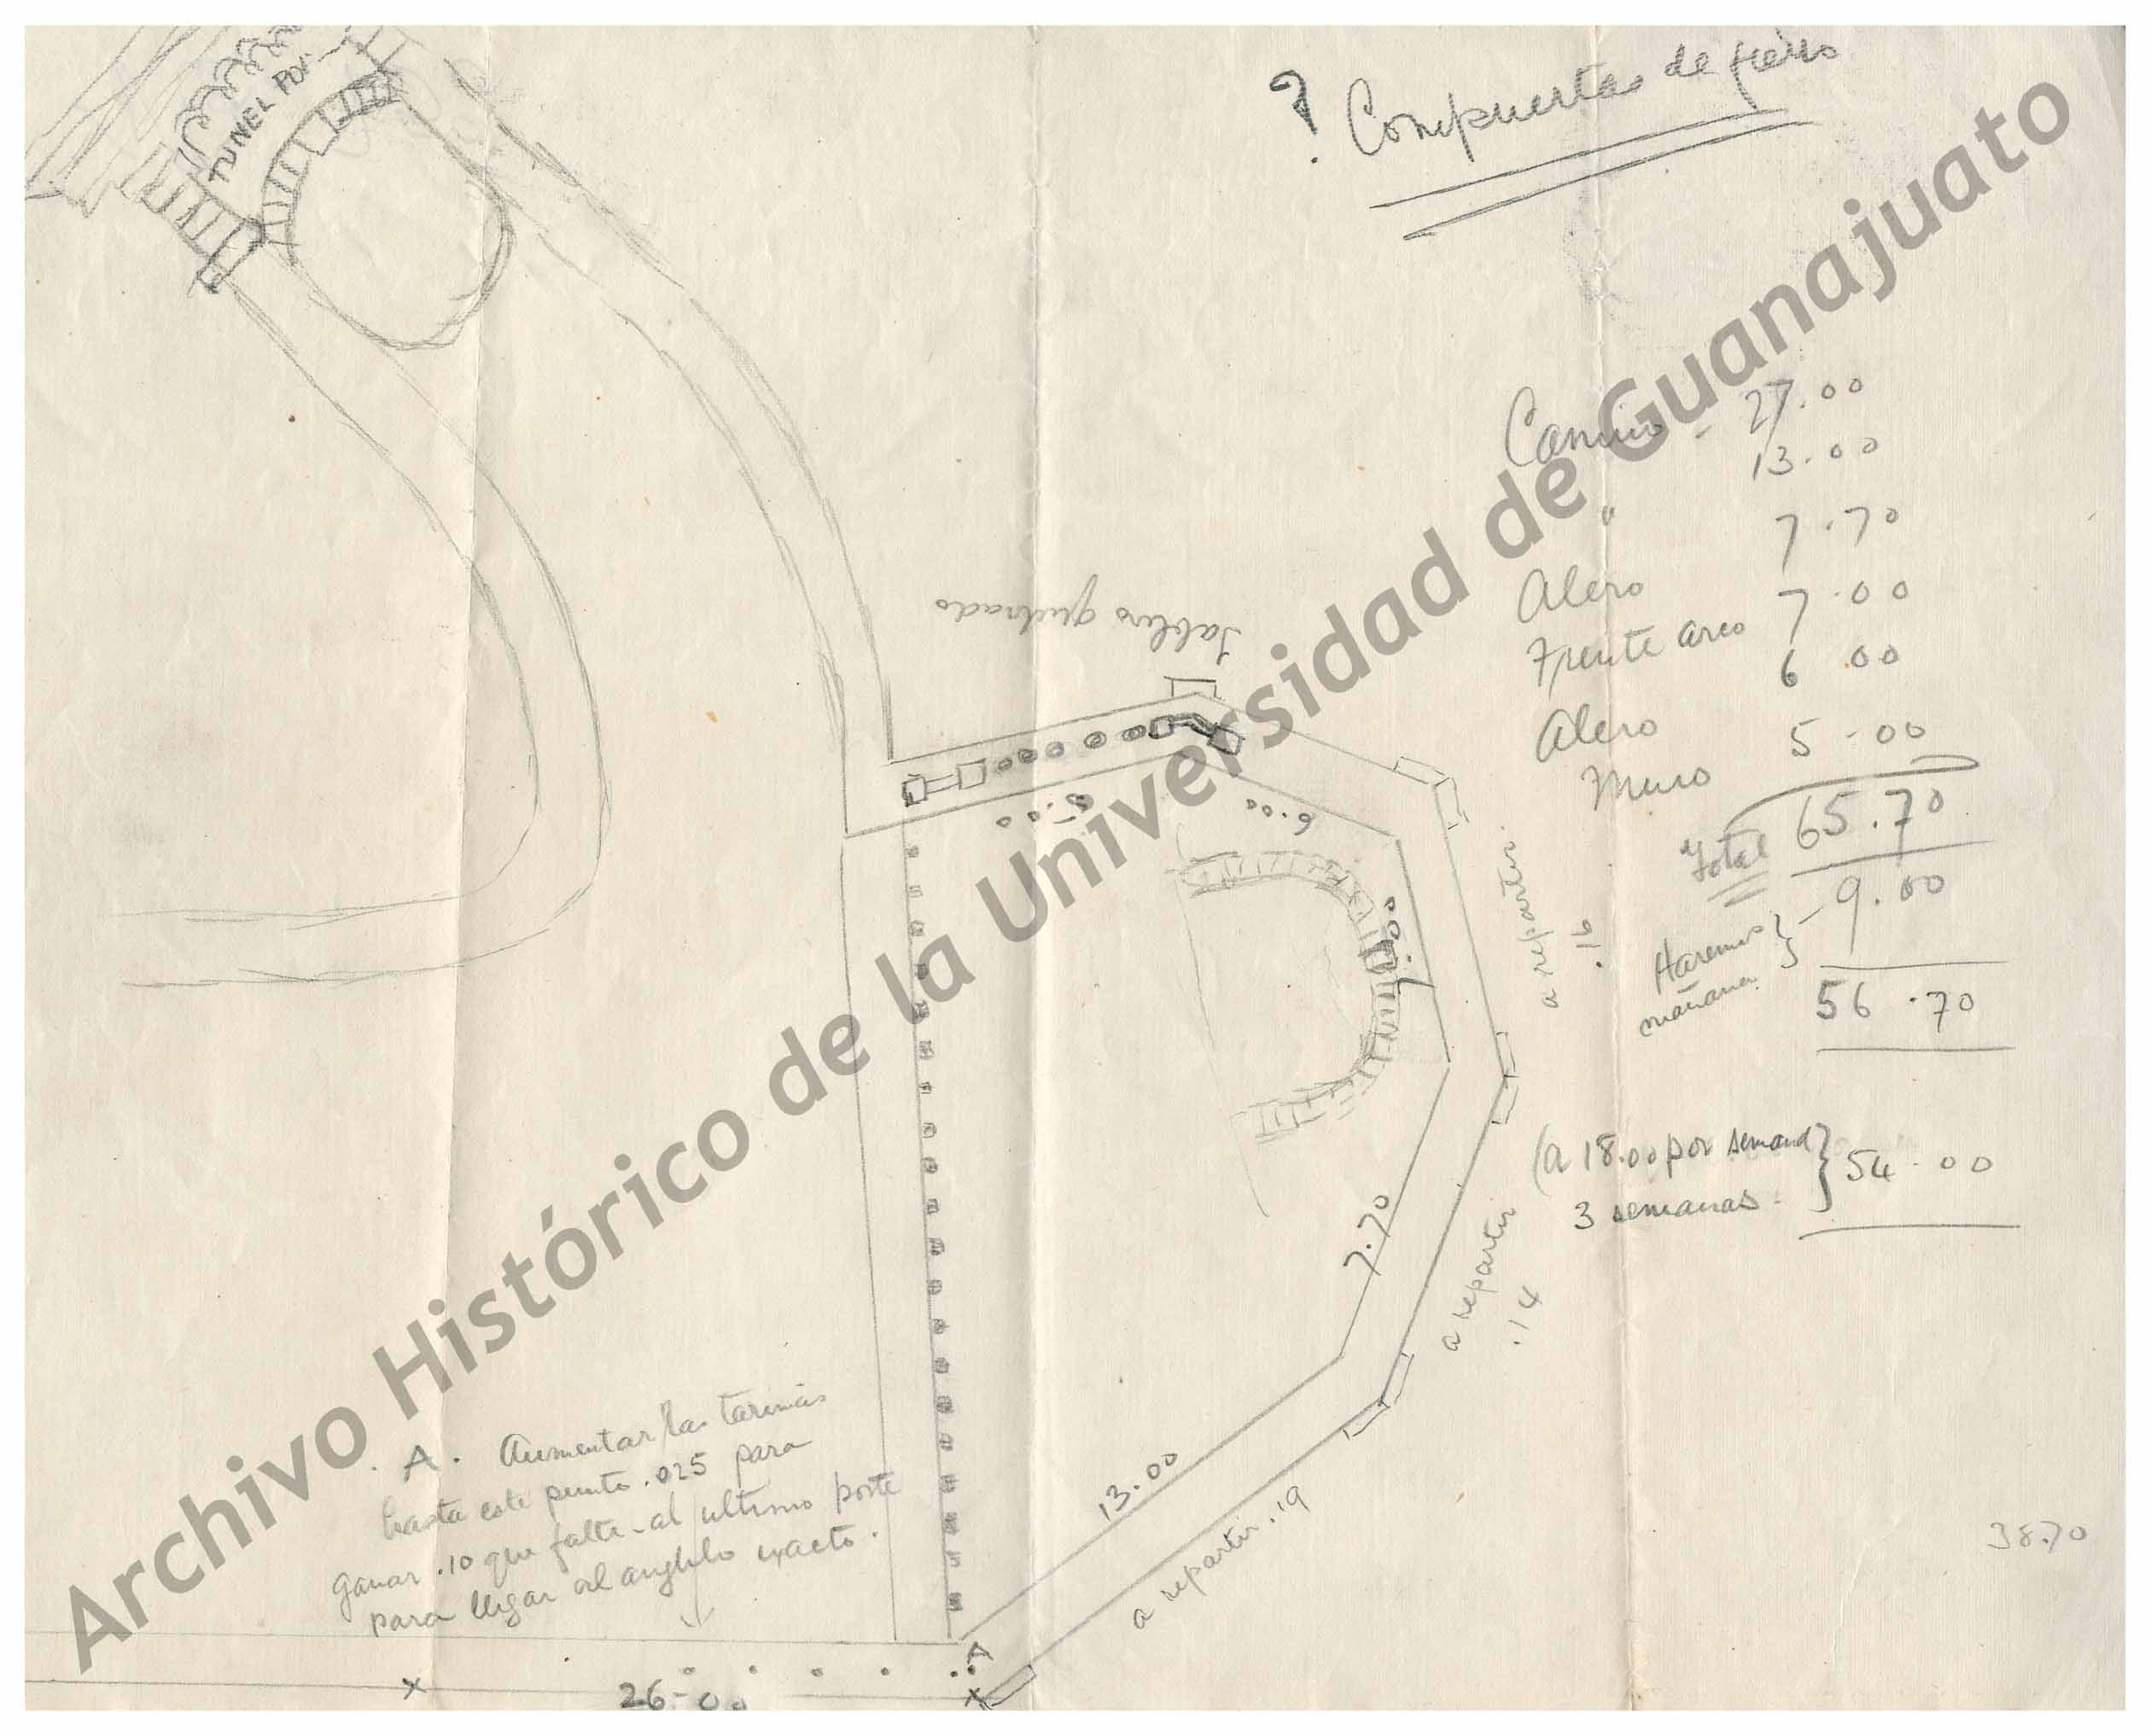 TUNEL POR
? Compuertas de fierro
Camino - 27.00
13.00
" 7.70
Alero 7.00
Frente arco 6 00
Alero 5.00
Muro
Total 65.70
Haremos mañana } - 9.00
56.70
(a 18.00 por semana
3 semanas - } 54.00
38.70
Tablero quebrado
5.00
6.00
7.00
a repartir.
.16
7.70
a repartir
.14
13.00
a repartir .19
A. Aumentar las tarimas
hasta este punto .025 para
ganar .10 que falta al ultimo poste
para llegar al angulo exacto.
A
x
x
26-00
Archivo Histórico de la Universidad de Guanajuato